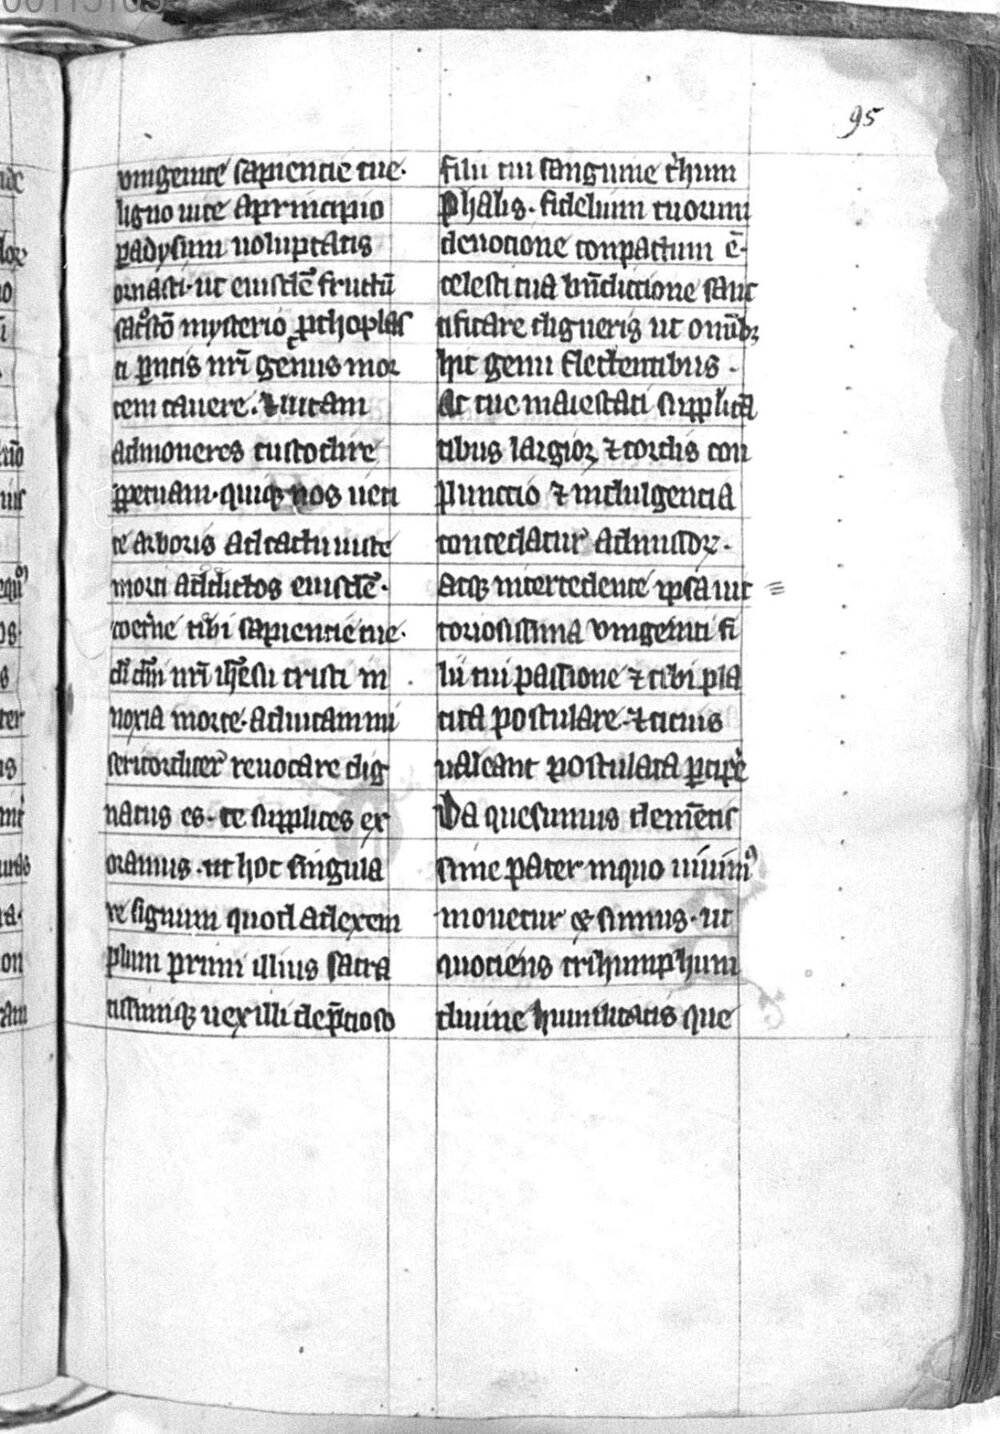 95
vnigenite sapiencie tue.
ligno uite a principio
padysum uoluptatis
ornasti. ut eiusdē fructū
mysterio
nr̄i genus mor
tem cauere. ⁊ uitam
admoneres custodire
ppetuam. quiq nos ueti
te arboris adtactu iuste
morti addictos eiusdē.
tibi sapiencie tue.
dī dn̄i nr̄i ihesu cristi in
noxia morte. ad uitam mi
sericorditer reuocare dig
natus es. te supplices ex
oramus. ut hoc singula
re signum quod ad exem
plum primi illius sacra
tissimiq uexilli de p̄cioso
filii tui sanguine
phalis. fidelium tuorum
deuotione conpactum ē.
celesti tua bn̄dictione sanc
tificare digneris ut
hic genu flectentibus.
Ac tue maiestati supplica
tibus largior ⁊ cordis con
punctio ⁊ indulgencia
concedatur
Atq intercedente ipsa uic
toriosissima vnigeniti fi
lii tui passione ⁊ tibi pla
cita postulare. ⁊ cicius
ualeant postulata
Da quesumus clemētis
sime pater in quo uiuim9
mouetur ⁊ sumus. ut
quociens trihumphum
diuine humilitatis que